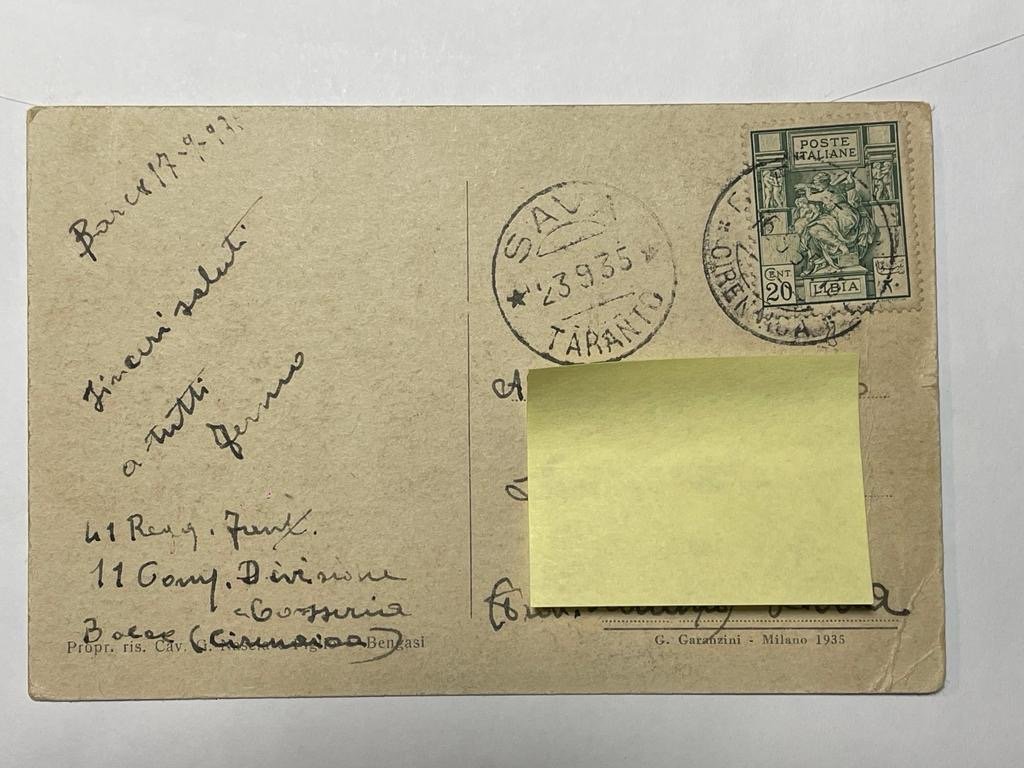 Barce 17-9-935
Sinceri saluti
a tutti
Fermo
41 Regg. Fant.
11 Comp. Divisione
Cosseria
(Cirenaica)
Propr. ris. Cav. G. Bengasi
SAVA
23.9.35
TARANTO
POSTE
ITALIANE
CENT
20
LIBIA
CIRENAICA
G. Garanzini - Milano 1935